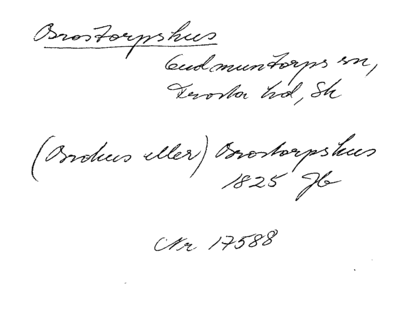 Brostorpshus
Gudmuntorps sn,
Frosta hd, Sk
(Brohus eller) Brostorpshus
1825 Jb
Nr 17588